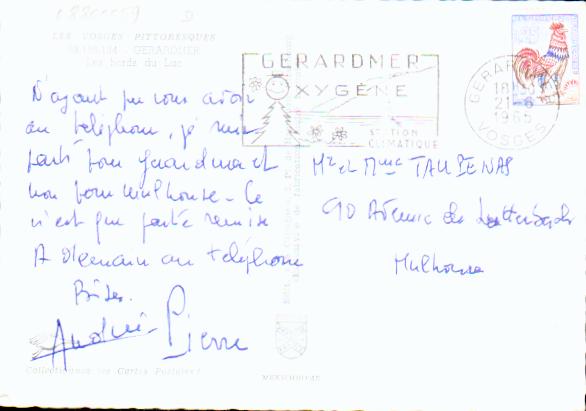 68800059 D
LES VOSGES PITTORESQUES
GERARDMER
Les bords du Lac
GERARDMER
OXYGÈNE
STATION
CLIMATIQUE
GERARDMER
18
21-6
1965
VOSGES
N'ayant pu vous avoir
au téléphone, je suis
parti pour Guardma et
non pour Mulhouse - Ce
n'est que partie remise
A demain au téléphone
Bises.
André-Pierre
Mr et Mme TAUPENAS
90 Avenue de Lutterbach
Mulhouse
Collectionnez les Cartes Postales!